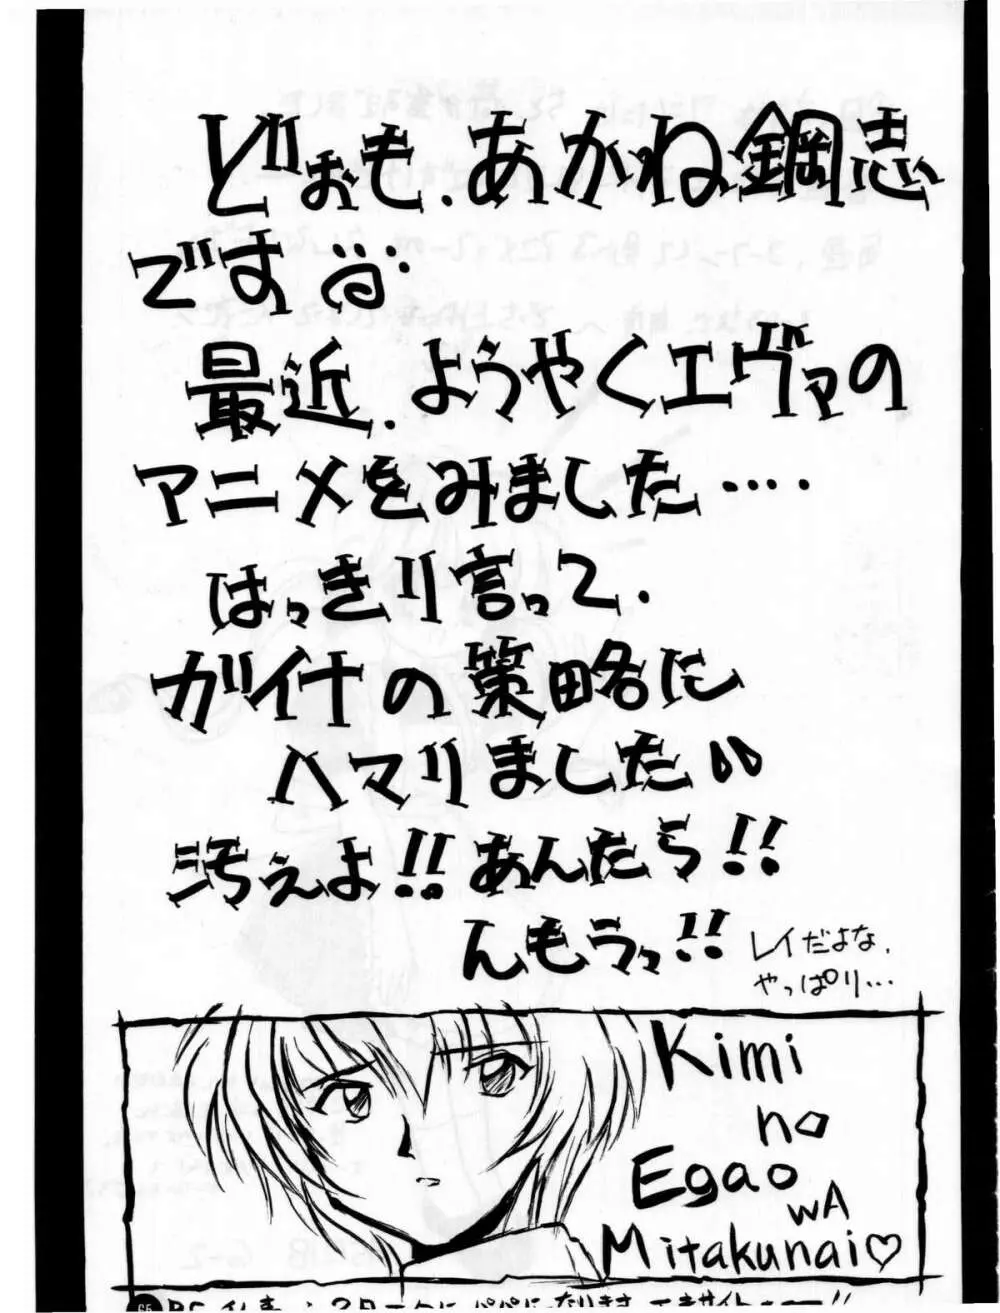 どぉも、あかね鋼志
です
最近、ようやくエヴァの
アニメをみました‥‥
はっきり言って、
ガイナの策略に
ハマリました
汚ぇよ!!あんたら!!
んもうっ!!
レイだよな、
やっぱり…
Kimi
no
Egao
wA
Mitakunai♡